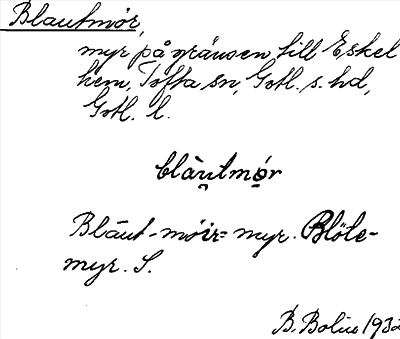 Blautmór,
myr på gränsen till Eskel
hem, Tofta sn, Gotl. s. hd,
Gotl. l.
blàu̯tmo̤r
Blāut-móir= myr. Blöte-
myr. S.
B. Bolin 1932